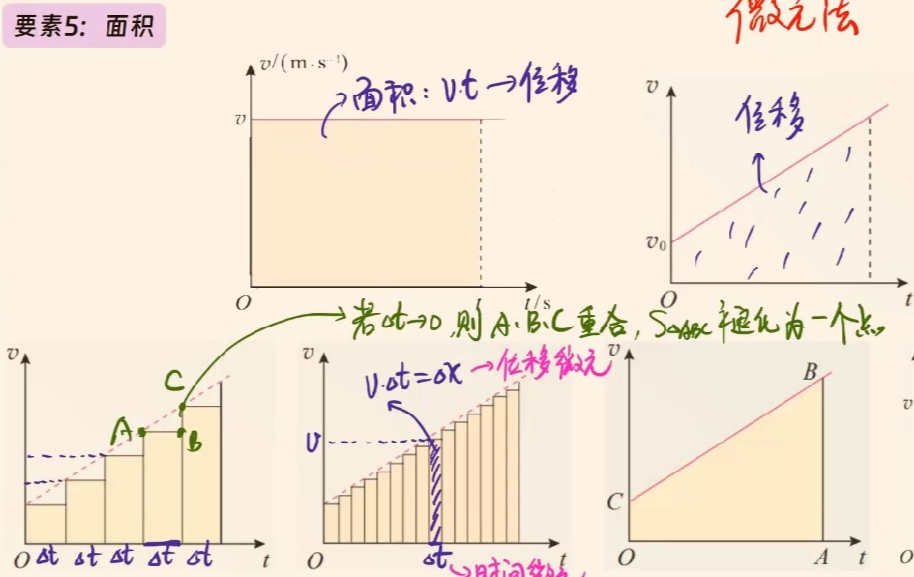 微元法
要素5：面积
v/(m·s⁻¹)
面积：v·t→位移
v
O
t
t/s
v
位移
v₀
O
t
若Δt→0,则A、B、C重合，S△ABC 退化为一个点
v
C
A
B
O
Δt Δt Δt Δt Δt
t
v
v·Δt=Δx→位移微元
v
O
Δt
t
→时间微元
v
B
C
O
A
t
v
O